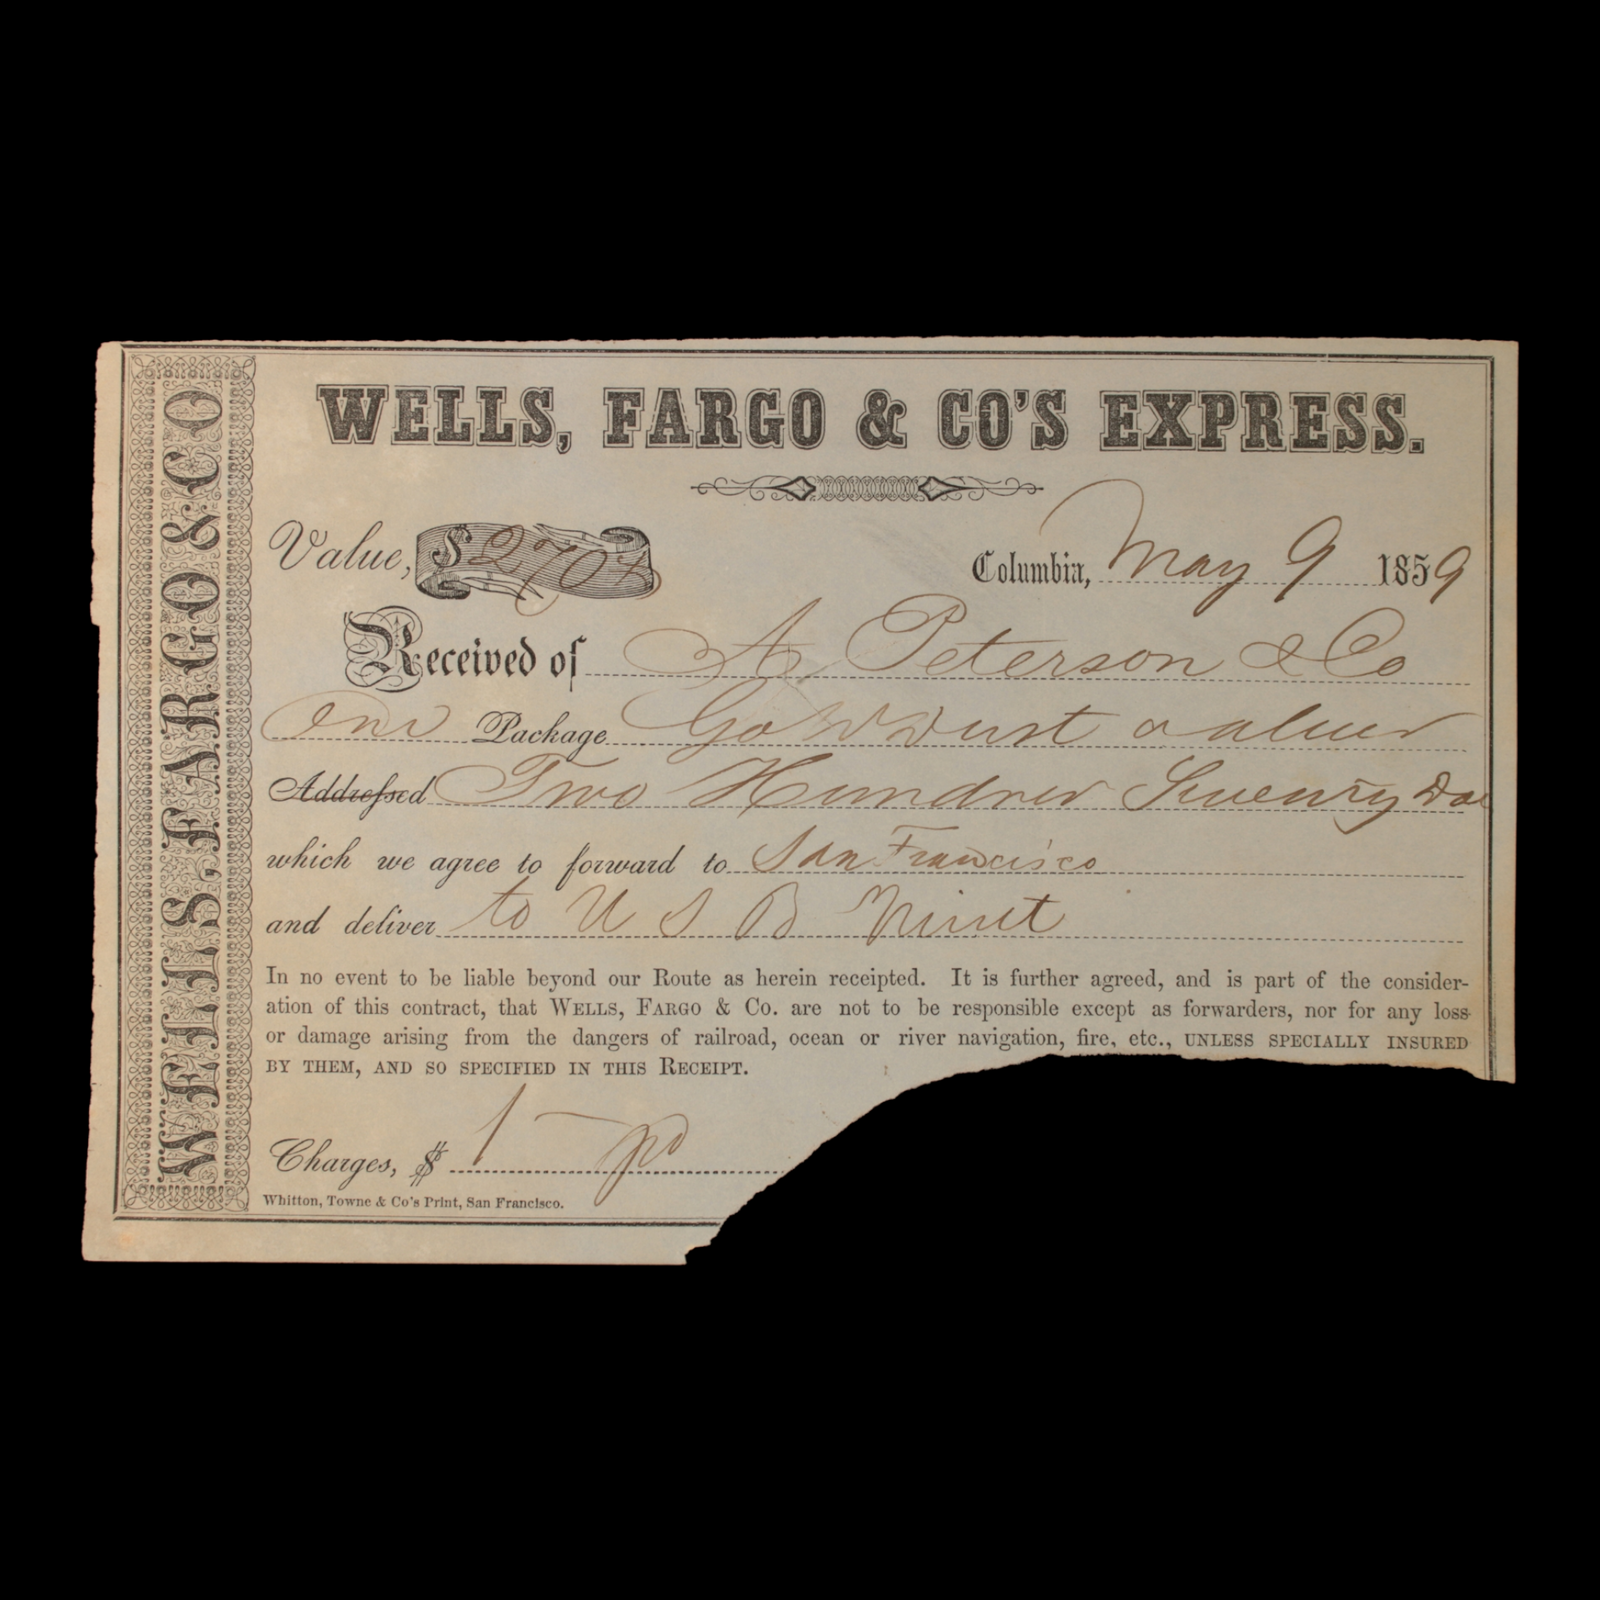 WELLS, FARGO & CO
WELLS, FARGO & CO'S EXPRESS.
Value, $ 270
Columbia, May 9 1859
Received of A Peterson & Co
One Package Gold Dust
Addressed Two Hundred Seventy Dol
which we agree to forward to San Francisco
and deliver to U S B Mint
In no event to be liable beyond our Route as herein receipted. It is further agreed, and is part of the consider-
ation of this contract, that WELLS, FARGO & Co. are not to be responsible except as forwarders, nor for any loss
or damage arising from the dangers of railroad, ocean or river navigation, fire, etc., UNLESS SPECIALLY INSURED
BY THEM, AND SO SPECIFIED IN THIS RECEIPT.
Charges, $ 1 — pd
Whitton, Towne & Co's Print, San Francisco.